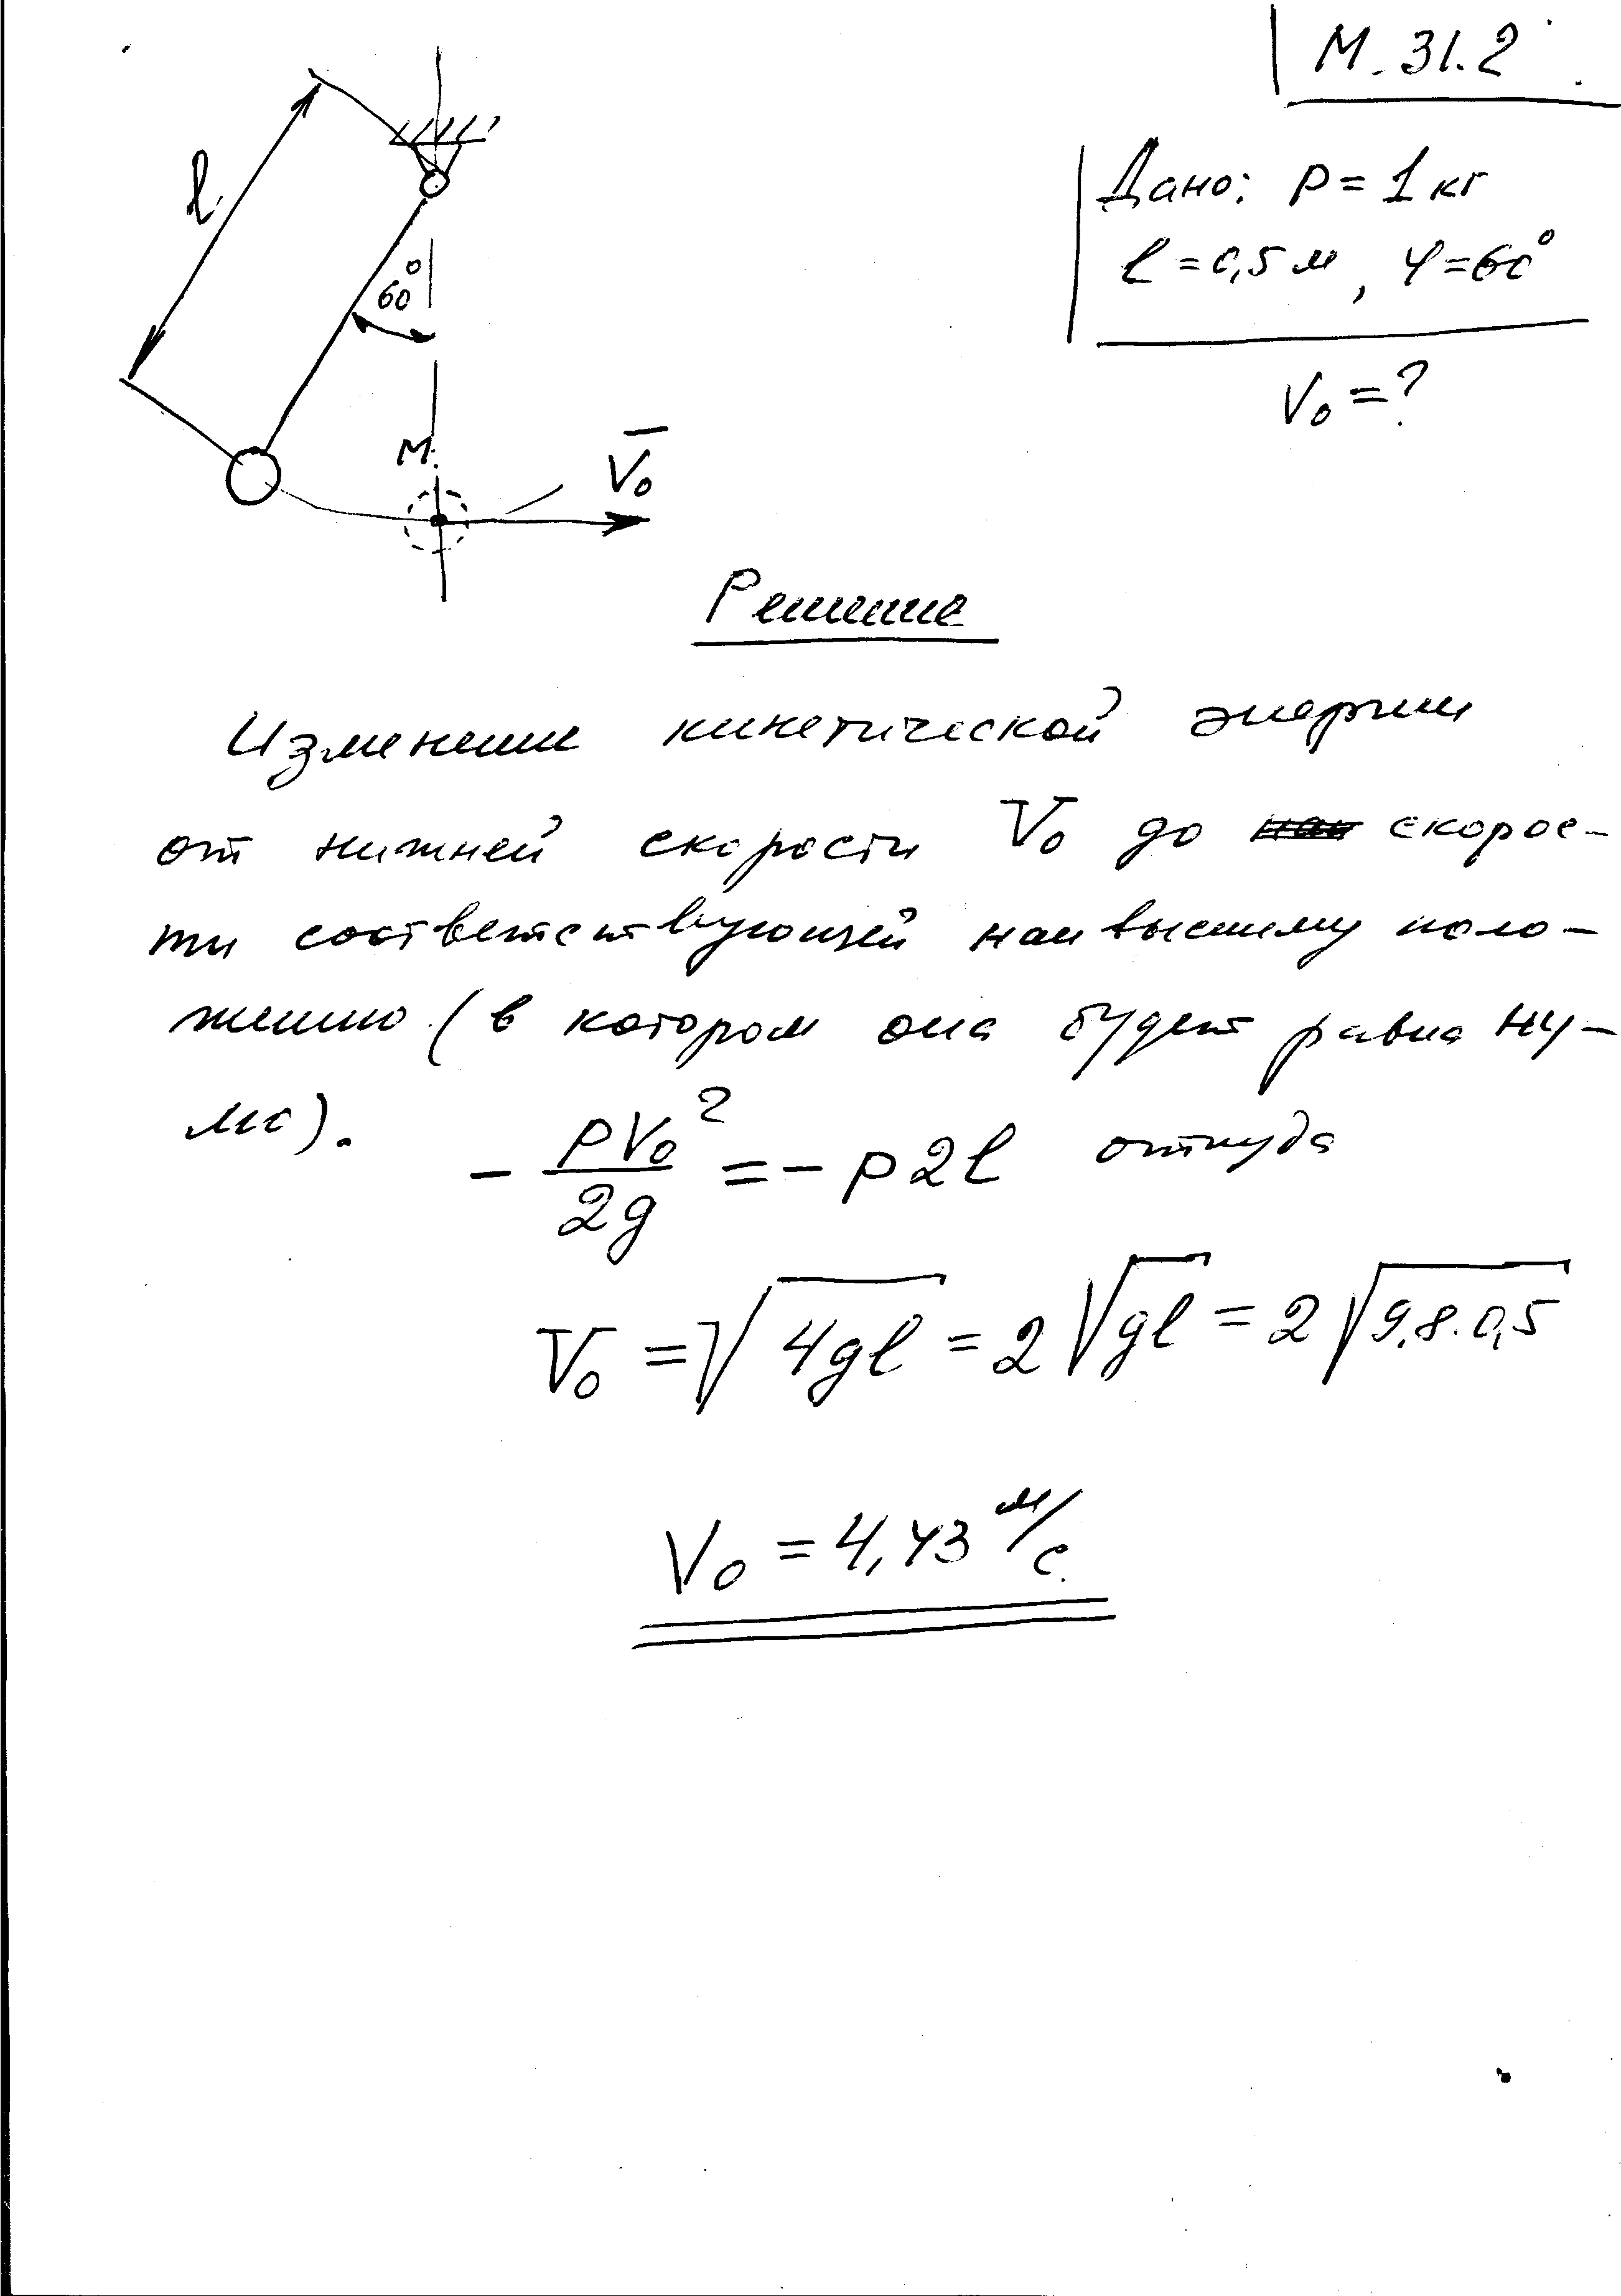 М. 31.2
Дано: P = 1 кг
l = 0,5 м, φ = 60°
V₀ = ?
l
60°
М.
V̅₀
Решение
Изменение кинетической энергии
от нижней скорости V₀ до скорос-
ти соответствующей наивысшему поло-
жению (в котором она будет равна ну-
лю).
- PV₀²/2g = - P2l откуда
V₀ = √4gl = 2√gl = 2√9,8·0,5
V₀ = 4,43 м/с